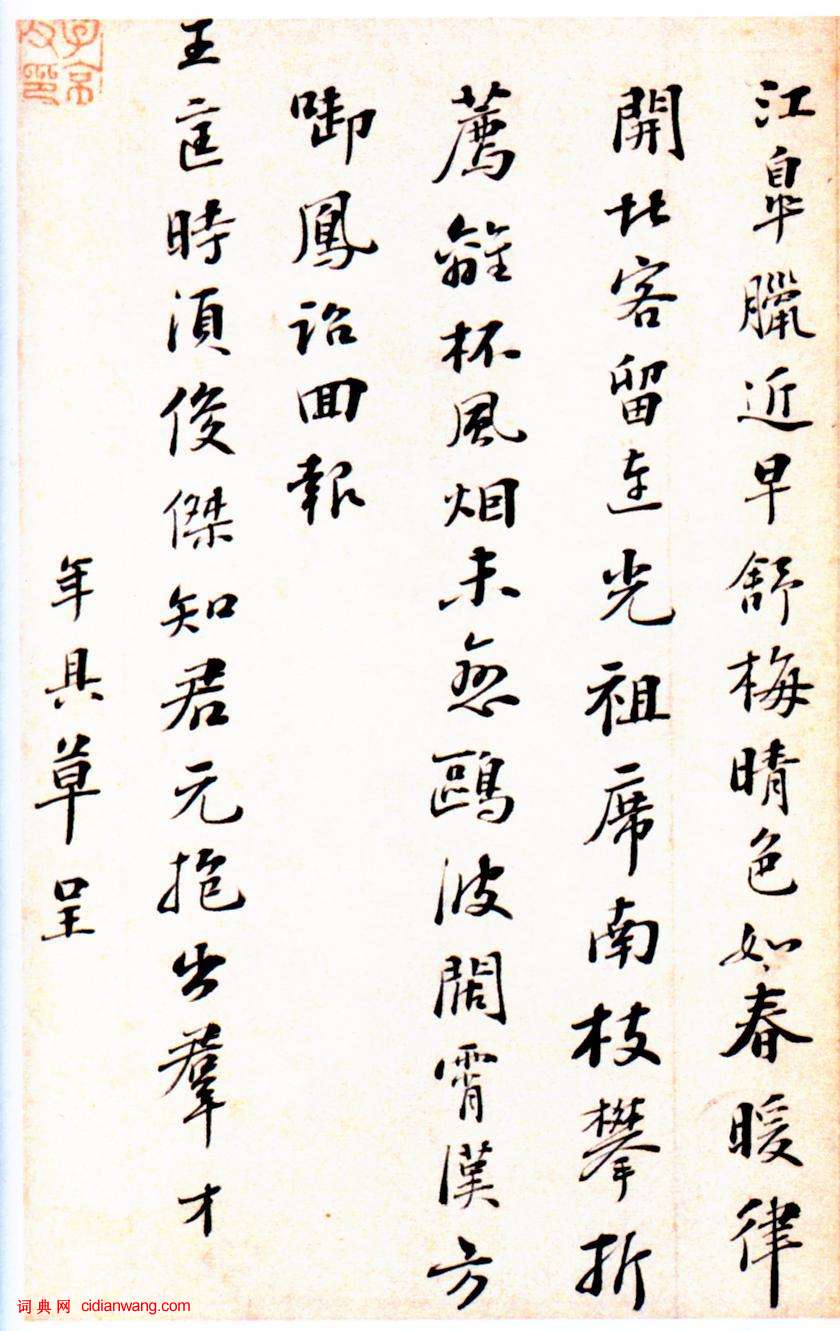 江皐臘近早舒梅晴色如春暖律
開北客留連光祖席南枝攀折
薦離杯風烟未鷗波闊霄漢方
啣鳳詔囬報
王匡時須俊傑知君元抱出羣才
年具草呈
子京父印
词典网 cidianwang.com